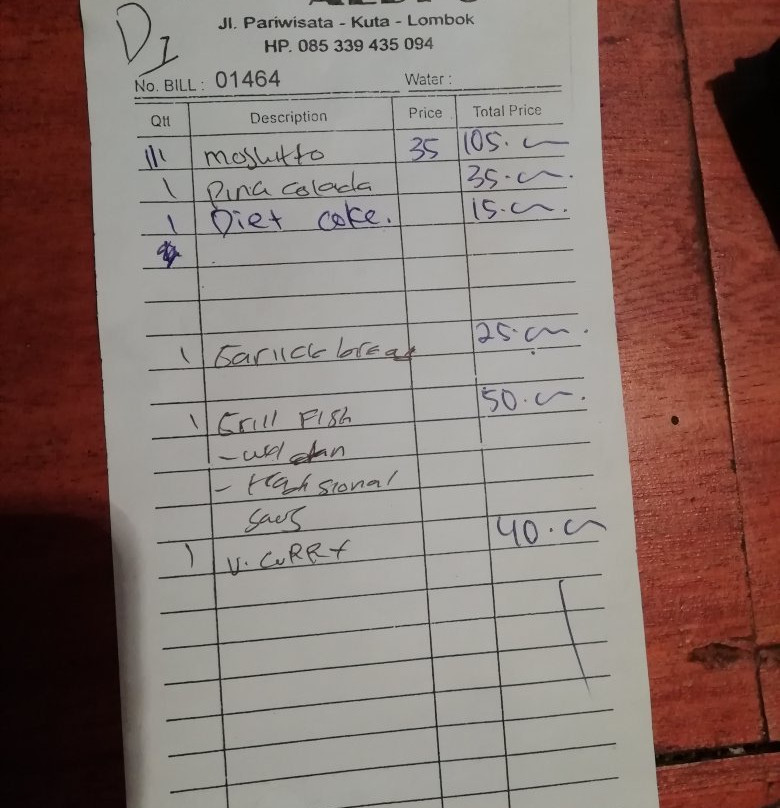 D1
Jl. Pariwisata - Kuta - Lombok
HP. 085 339 435 094
No. BILL : 01464 Water :
Qtt Description Price Total Price
III moshitto 35 105.
1 pina colada 35.
1 Diet coke. 15.
1 Garlick bread 25.
1 Grill Fish 50.
- well dan
- tradisional
saos
1 V. CURRY 40.